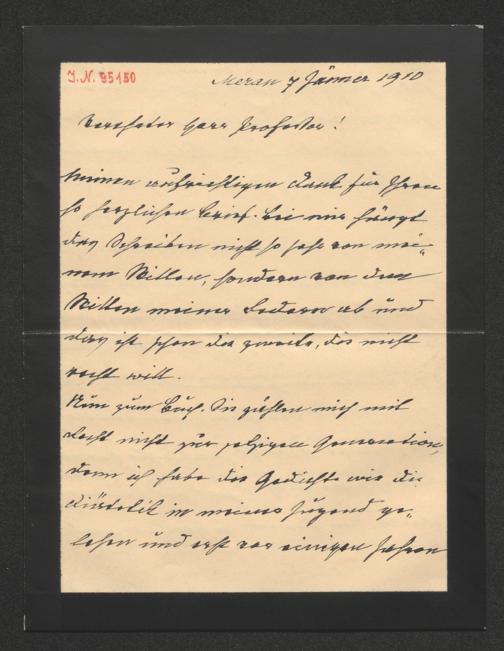 J.N. 95150
Meran 7 Jänner 1910
Verehrter Herr Professor!
Meinen aufrichtigen Dank für Ihren
so herzlichen Brief. Bei mir hängt
das Schreiben nicht so sehr von mei-
nem Willen, sondern von dem
Willen meiner Federn ab und
das ist schon die zweite, die nicht
recht will.
Nun zum Buch. Sie zählen mich mit
Recht nicht zur jetzigen Generation,
denn ich habe die Gedichte wie die
Diätetik in meiner Jugend ge-
lesen und erst vor einigen Jahren